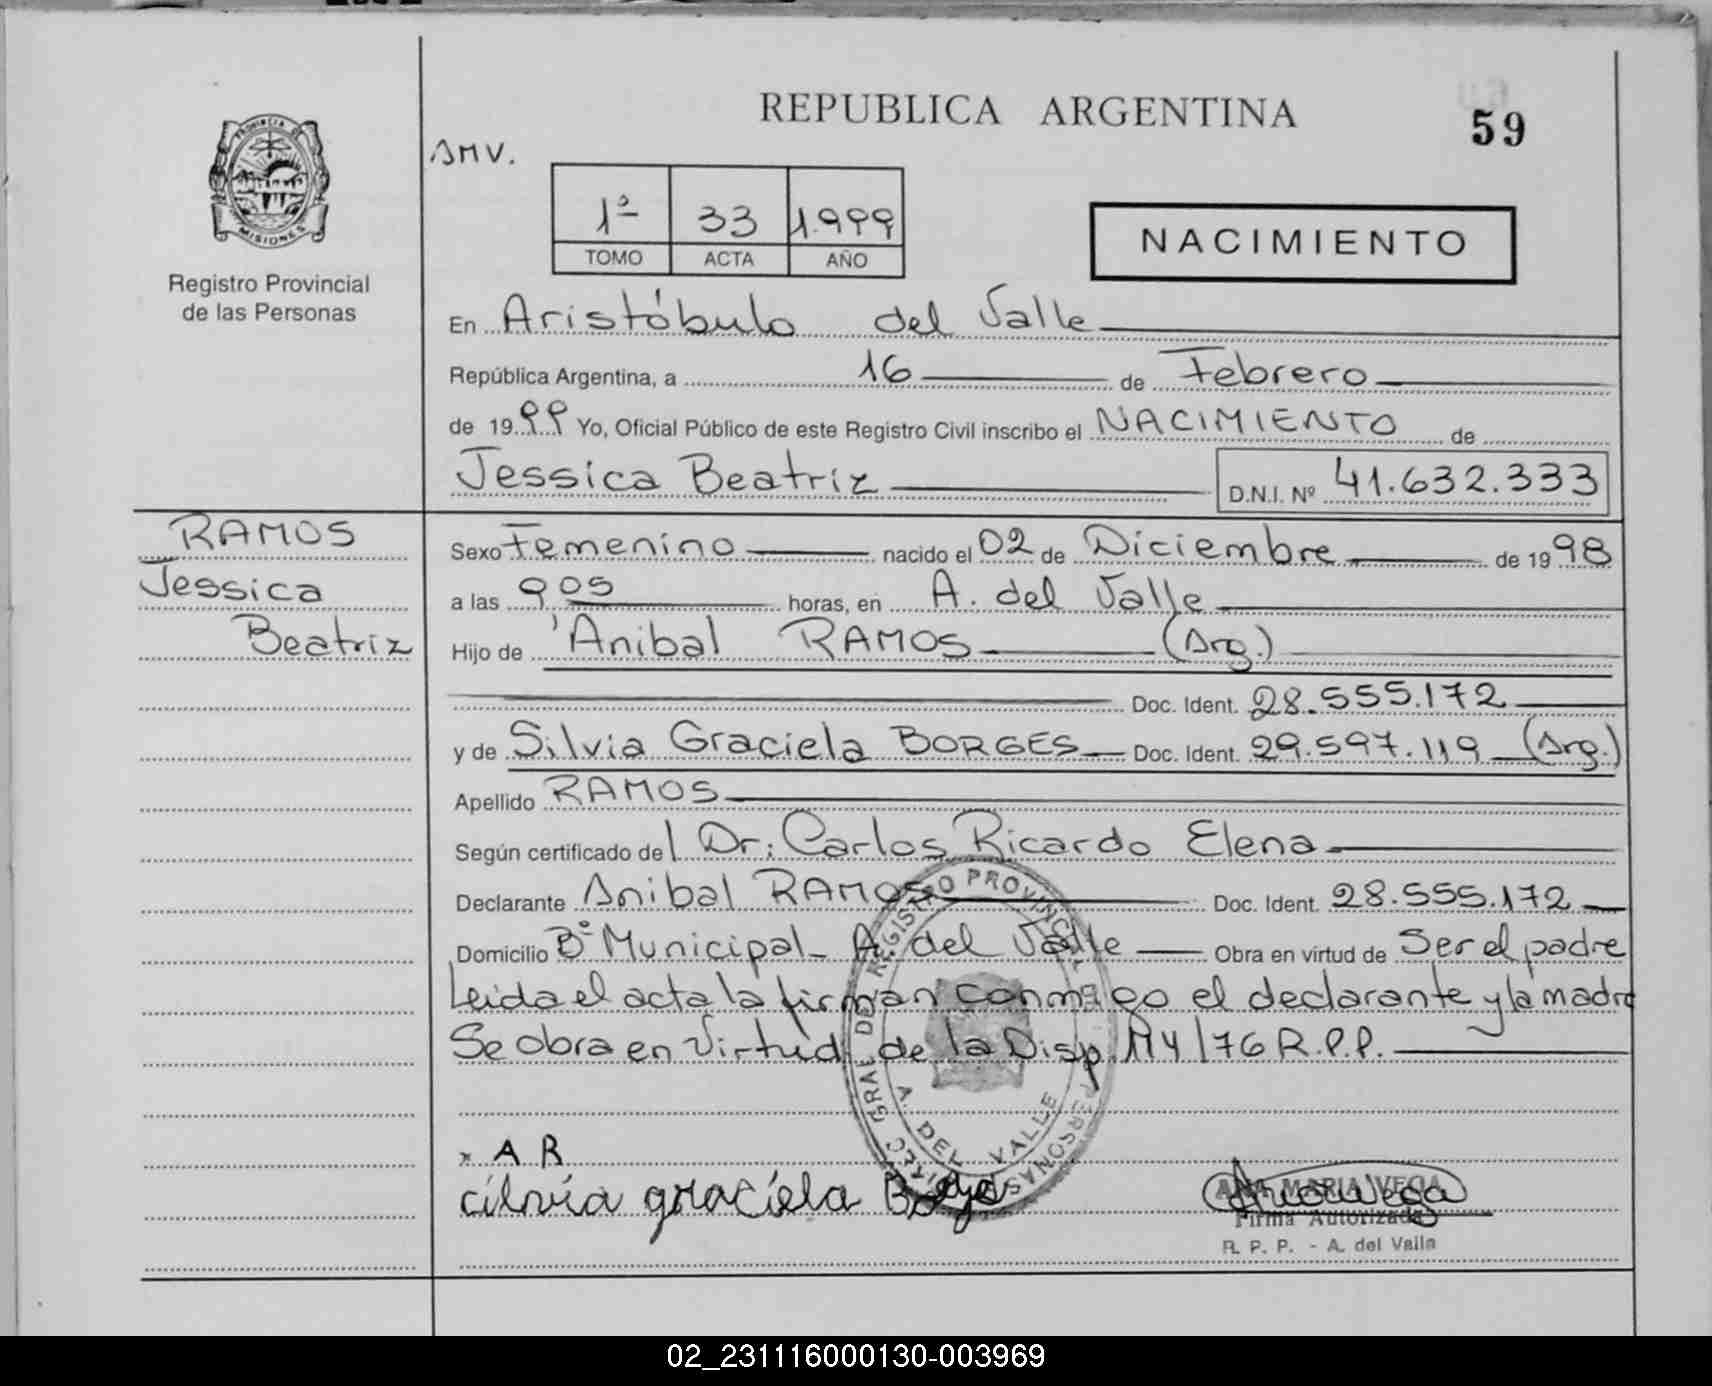 REPUBLICA ARGENTINA
59
AMV.
PROVINCIA DE
MISIONES
Registro Provincial
de las Personas
1º 33 1.999
TOMO ACTA AÑO
NACIMIENTO
En Aristóbulo del Valle
República Argentina, a 16 de Febrero
de 1999 Yo, Oficial Público de este Registro Civil inscribo el NACIMIENTO de
Jessica Beatriz D.N.I. Nº 41.632.333
RAMOS
Jessica
Beatriz
Sexo Femenino nacido el 02 de Diciembre de 1998
a las 905 horas, en A. del Valle
Hijo de Anibal RAMOS (Arg.)
Doc. Ident. 28.555.172
y de Silvia Graciela BORGES Doc. Ident. 29.597.119 (Arg.)
Apellido RAMOS
Según certificado del Dr: Carlos Ricardo Elena
Declarante Anibal RAMOS Doc. Ident. 28.555.172
Domicilio Bº Municipal - A. del Valle Obra en virtud de Ser el padre
Leida el acta la firman conmigo el declarante y la madre
Se obra en Virtud de la Disp. 114/76 R.P.P.
REGISTRO PROVINCIAL
A. DEL VALLE
x A R
cilvia graciela
ANA MARIA VEGA
Firma Autorizada
R. P. P. - A. del Valle
02_231116000130-003969